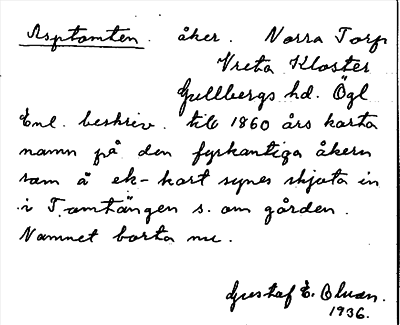 Asptomten. åker. Norra Torp
Vreta Kloster
Gullbergs hd. Ögl
Enl. beskriv. till 1860 års karta
namn på den fyrkantiga åkern
som å ek-kart synes skjuta in
i Tomtängen s. om gården.
Namnet borta nu.
Gustaf E. Bluan.
1936.